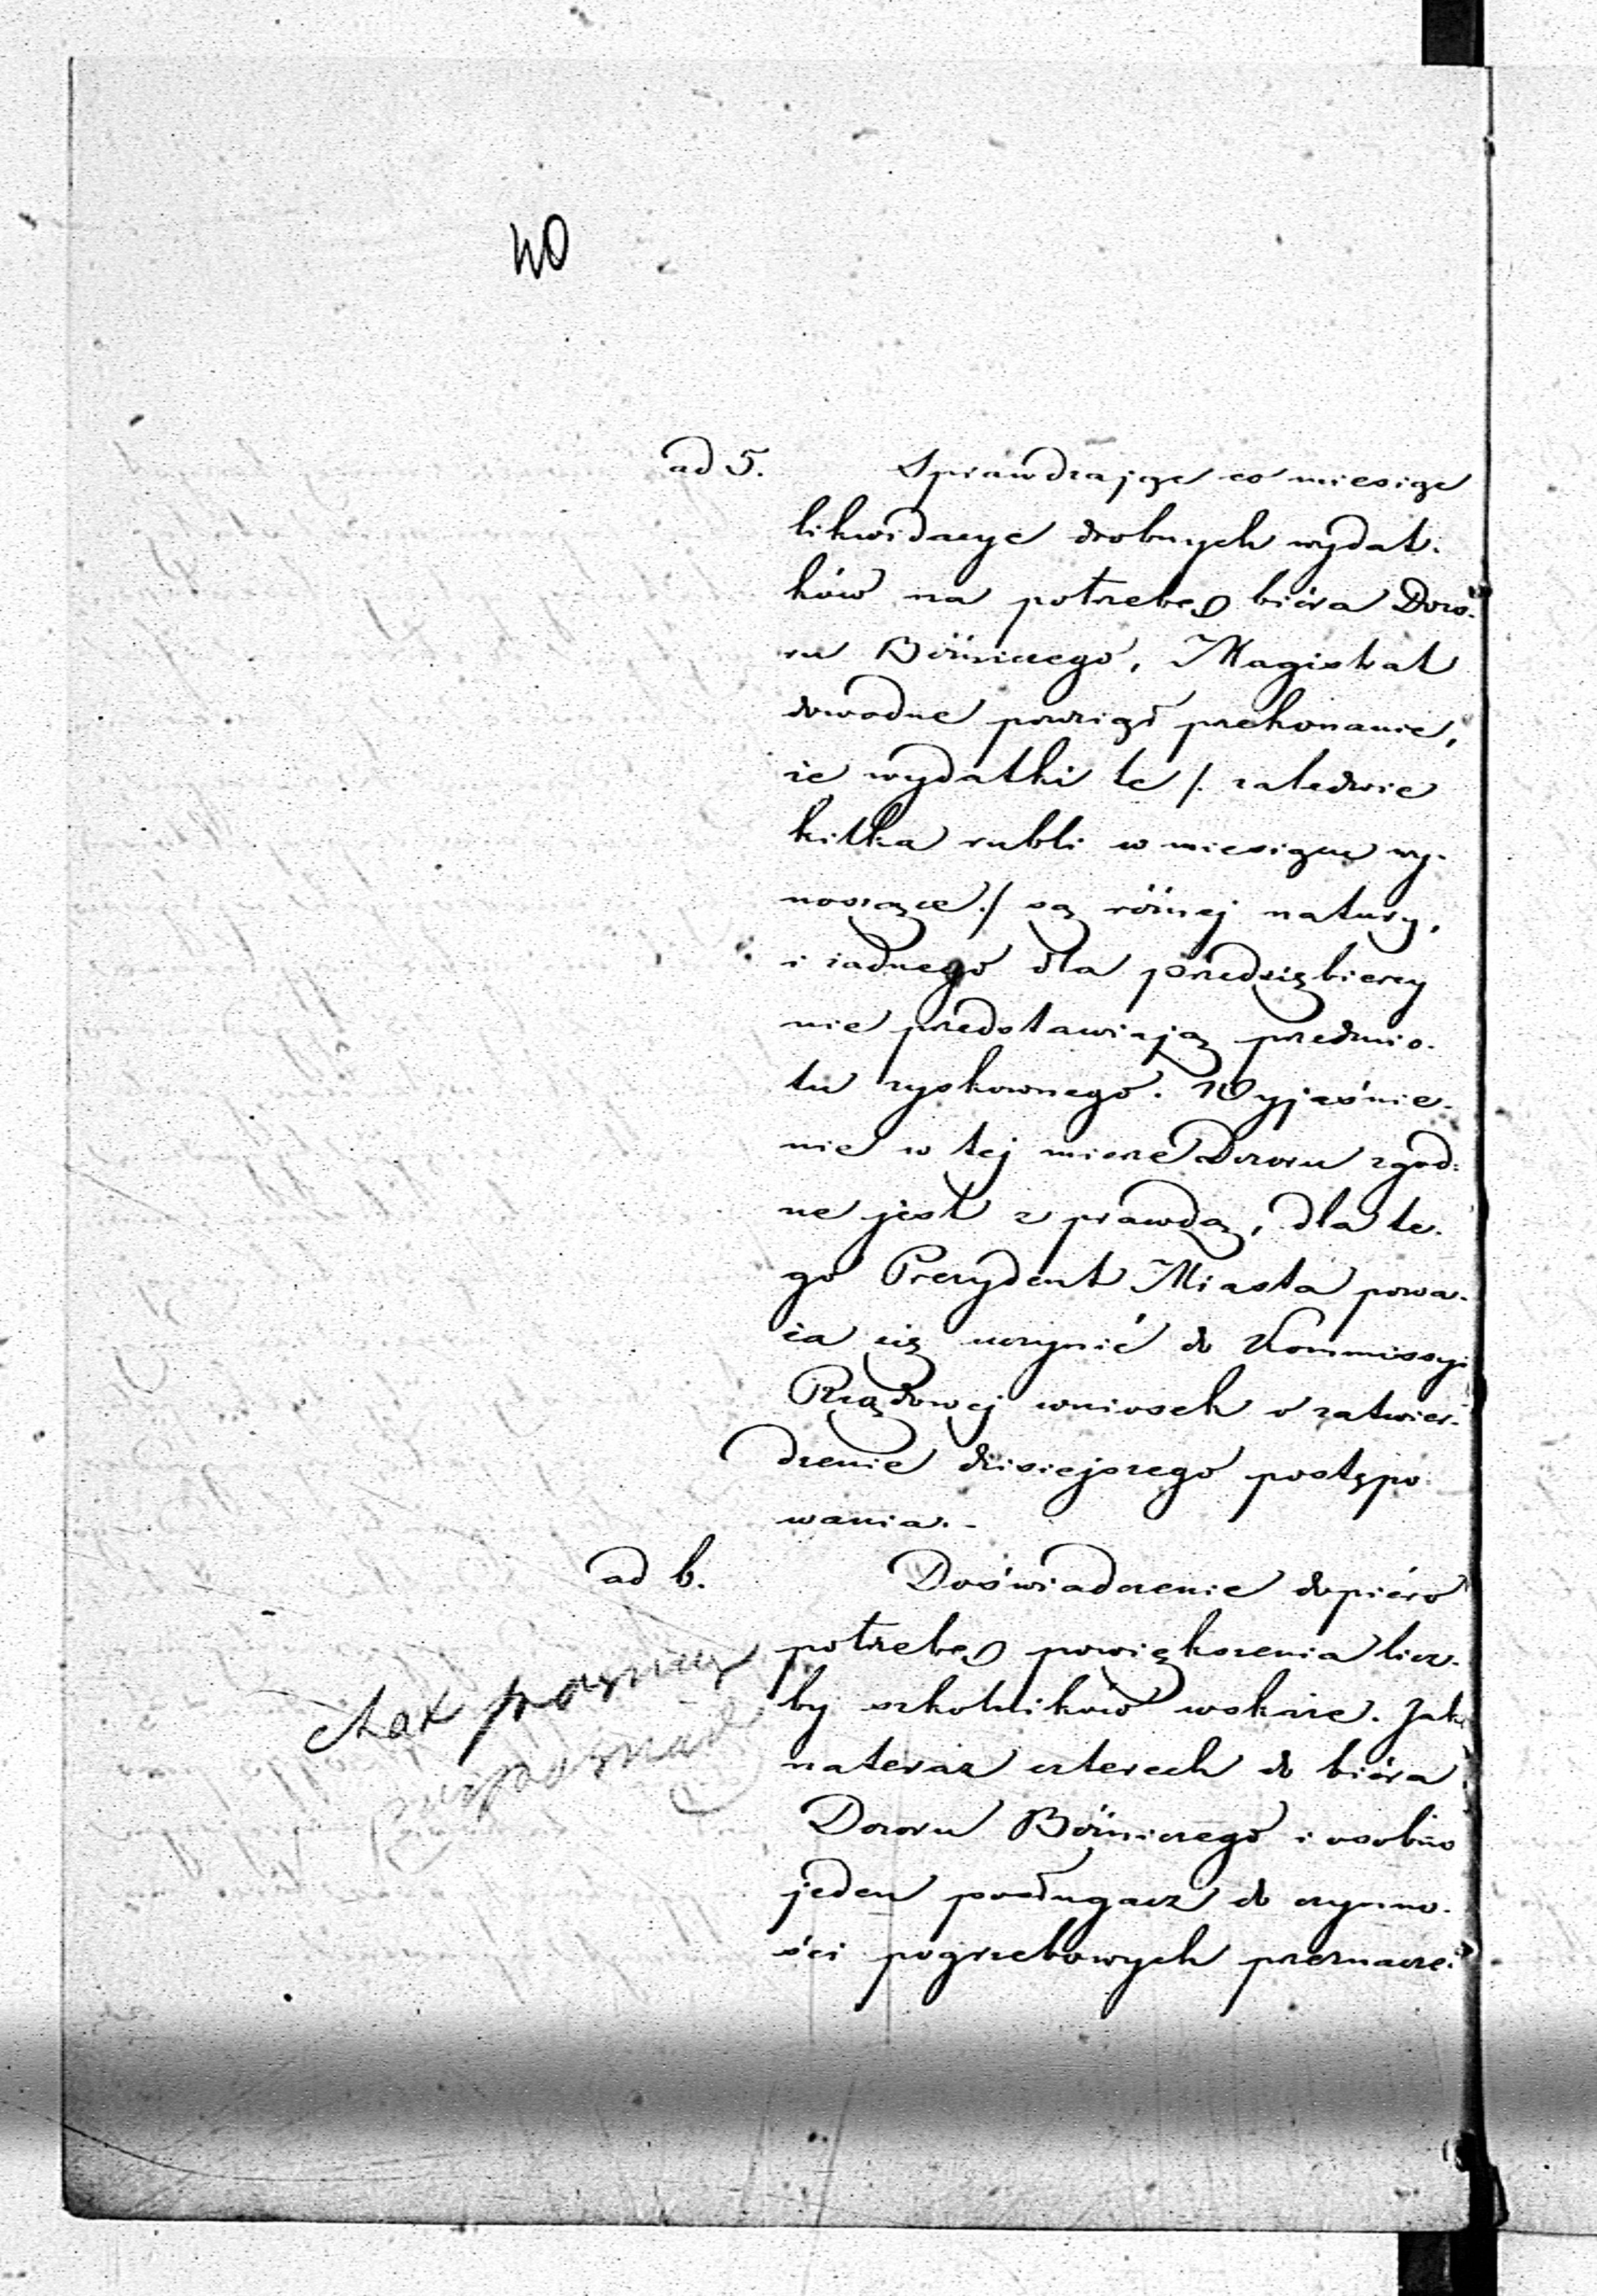 40
ad 5. Sprawdzając co miesiąc
likwidacye drobnych wydat-
ków na potrzebę bióra Dozo-
ru Bóżniczego, Magistrat
dowodne powziął przekonanie,
że wydatki te /: zaledwie
kilka rubli w miesiącu wy-
noszące :/ są różnej natury,
i żadnego dla przedsiębiercy
nie przedstawiają przedmio-
tu zyskownego. Wyjaśnie-
nie w tej mierze Dozoru zgod-
ne jest z prawdą, dla te-
go Prezydent Miasta powa-
ża się uczynić do Kommissyi
Rządowej wniosek o zatwier-
dzenie dzisiejszego postępo-
wania.-
ad 6. Doświadczenie dopiéro
potrzebę powiększenia licz-
by szkolników wskaże. Jak
nateraz czterech do bióra
Dozoru Bóżniczego i osobno
jeden posługacz do czynno-
ści pogrzebowych przeznacze-